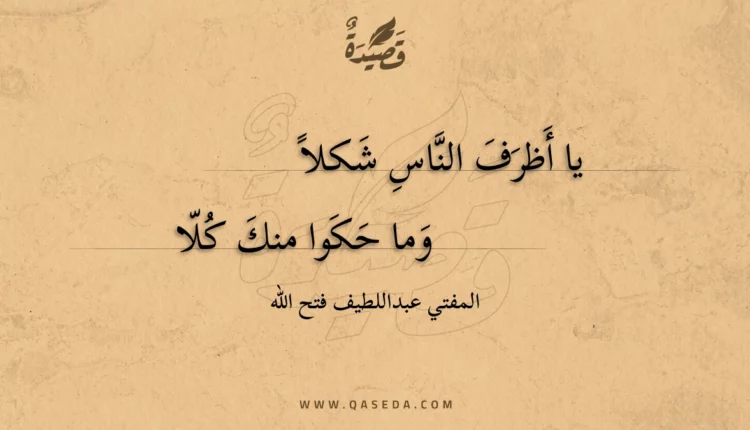 قَصِيْدَةٌ
يا أَظرَفَ النَّاسِ شَكلاً
وَما حَكَوا منكَ كُلّا
المفتي عبداللطيف فتح الله
WWW.QASEDA.COM